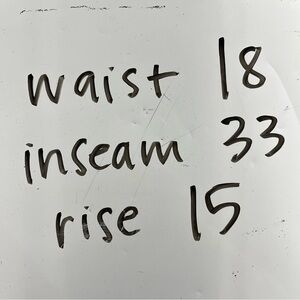 waist 18
inseam 33
rise 15